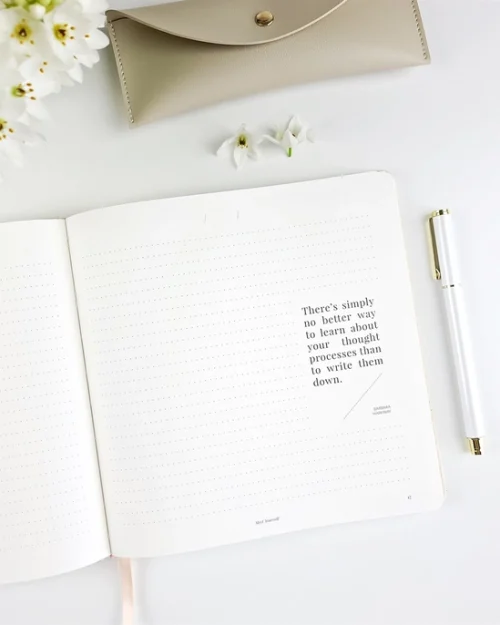 There's simply
no better way
to learn about
your thought
processes than
to write them
down.